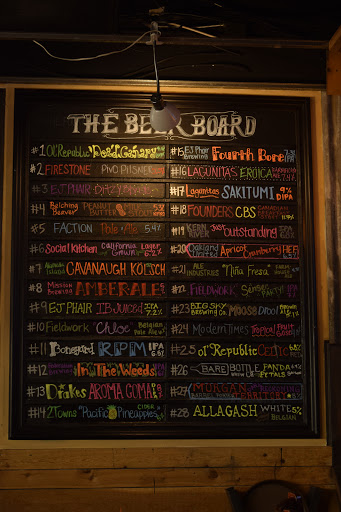 THE BEER BOARD
#1 Ol' Republic Dead Canary
#2 FIRESTONE PIVO PILSNER
#3 EJ PHAIR
#4 Belching Beaver PEANUT BUTTER STOUT
#5 FACTION Pale Ale 5.4%
#6 Social Kitchen California Lager
#7 Alameda Island CAVANAUGH KÖLSCH
#8 Mission Brewing AMBERALE
#9 EJ PHAIR IB JUICED IPA 7.2%
#10 Fieldwork "Chloe" Belgian Pale Ale
#11 Boneyard RPM IPA
#12 In The Weeds
#13 Drakes AROMA COMA
#14 2 Towns "Pacific Pineapple" CIDER
#15 EJ Phair Brewing Fourth Bore IPA
#16 LAGUNITAS EROICA
#17 Lagunitas SAKITUMI 9% DIPA
#18 FOUNDERS CBS
#19 Just Outstanding
#20 Oakland United Apricot Cranberry HEF
#21 INDUSTRIES Tina Fresa
FIELDWORK
#23 BIG SKY BREWING CO. MOOSE Drool
#24 Modern Times Tropical
#25 Ol' Republic Celtic
#26 BARE BOTTLE PANDA PETALS
#27 MORGAN TERRITORY
#28 ALLAGASH WHITE 5% BELGIAN